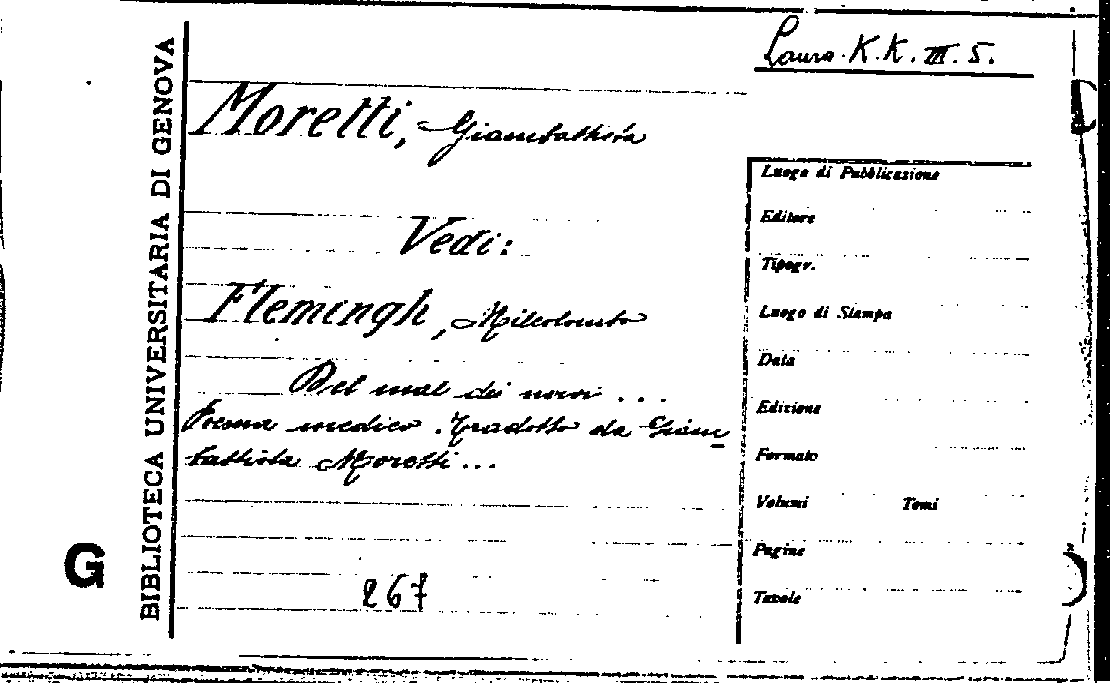 Laura K.K. III. 5.
BIBLIOTECA UNIVERSITARIA DI GENOVA
G
Moretti, Giambattista
Vedi:
Flemingh, Milcolombo
Del mal dei nervi ...
Poema medico. Tradotto da Giam
battista Moretti...
267
Luogo di Pubblicazione
Editore
Tipogr.
Luogo di Stampa
Data
Edizione
Formato
Volumi Tomi
Pagine
Tavole